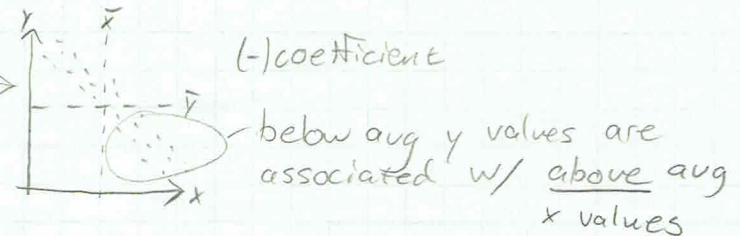 Y
x̄
(-)coefficient
ȳ
below avg y values are
associated w/ above avg
x values
x